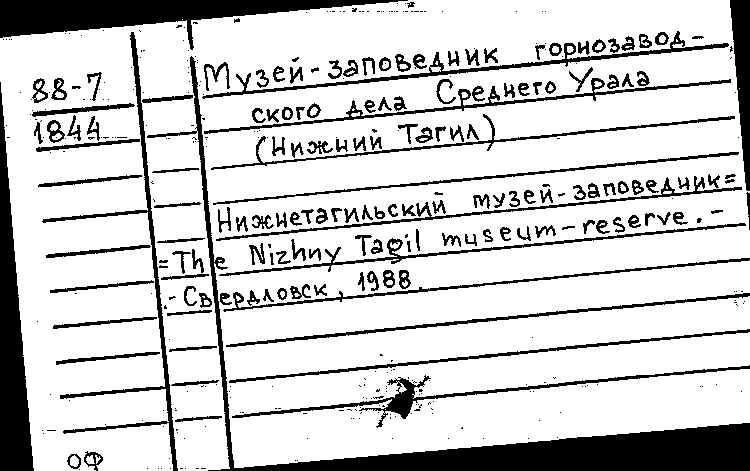 88-7
1844
Музей-заповедник горнозавод-
ского дела Среднего Урала
(Нижний Тагил)
Нижнетагильский музей-заповедник=
=The Nizhny Tagil museum-reserve.-
.-Свердловск, 1988.
ОФ